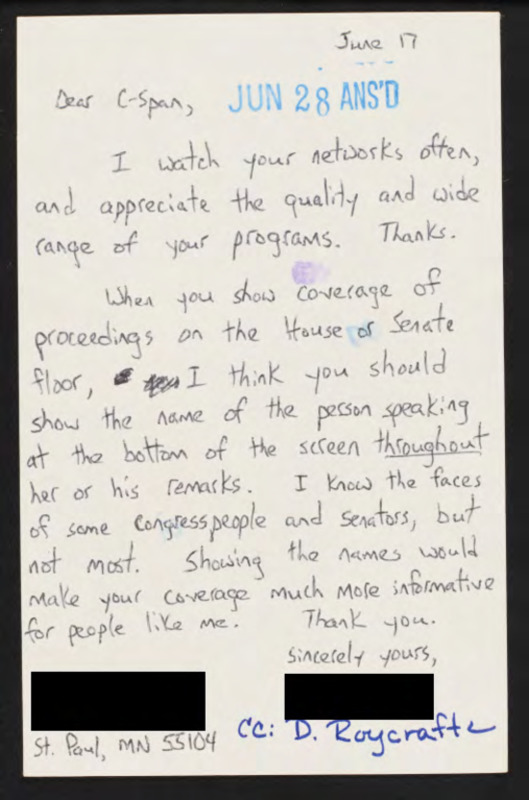 June 17
Dear C-Span,
JUN 28 ANS'D
I watch your networks often,
and appreciate the quality and wide
range of your programs. Thanks.
When you show coverage of
proceedings on the House or Senate
floor, I think you should
show the name of the person speaking
at the bottom of the screen throughout
her or his remarks. I know the faces
of some Congresspeople and Senators, but
not most. Showing the names would
make your coverage much more informative
for people like me. Thank you.
Sincerely yours,
St. Paul, MN 55104
CC: D. Roycrafte